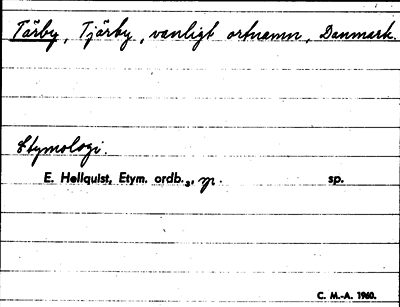 Tärby, Tjärby, vanligt ortnamn, Danmark.
Etymologi.
E. Hellquist, Etym. ordb.3, sp.
C. M.-A. 1960.